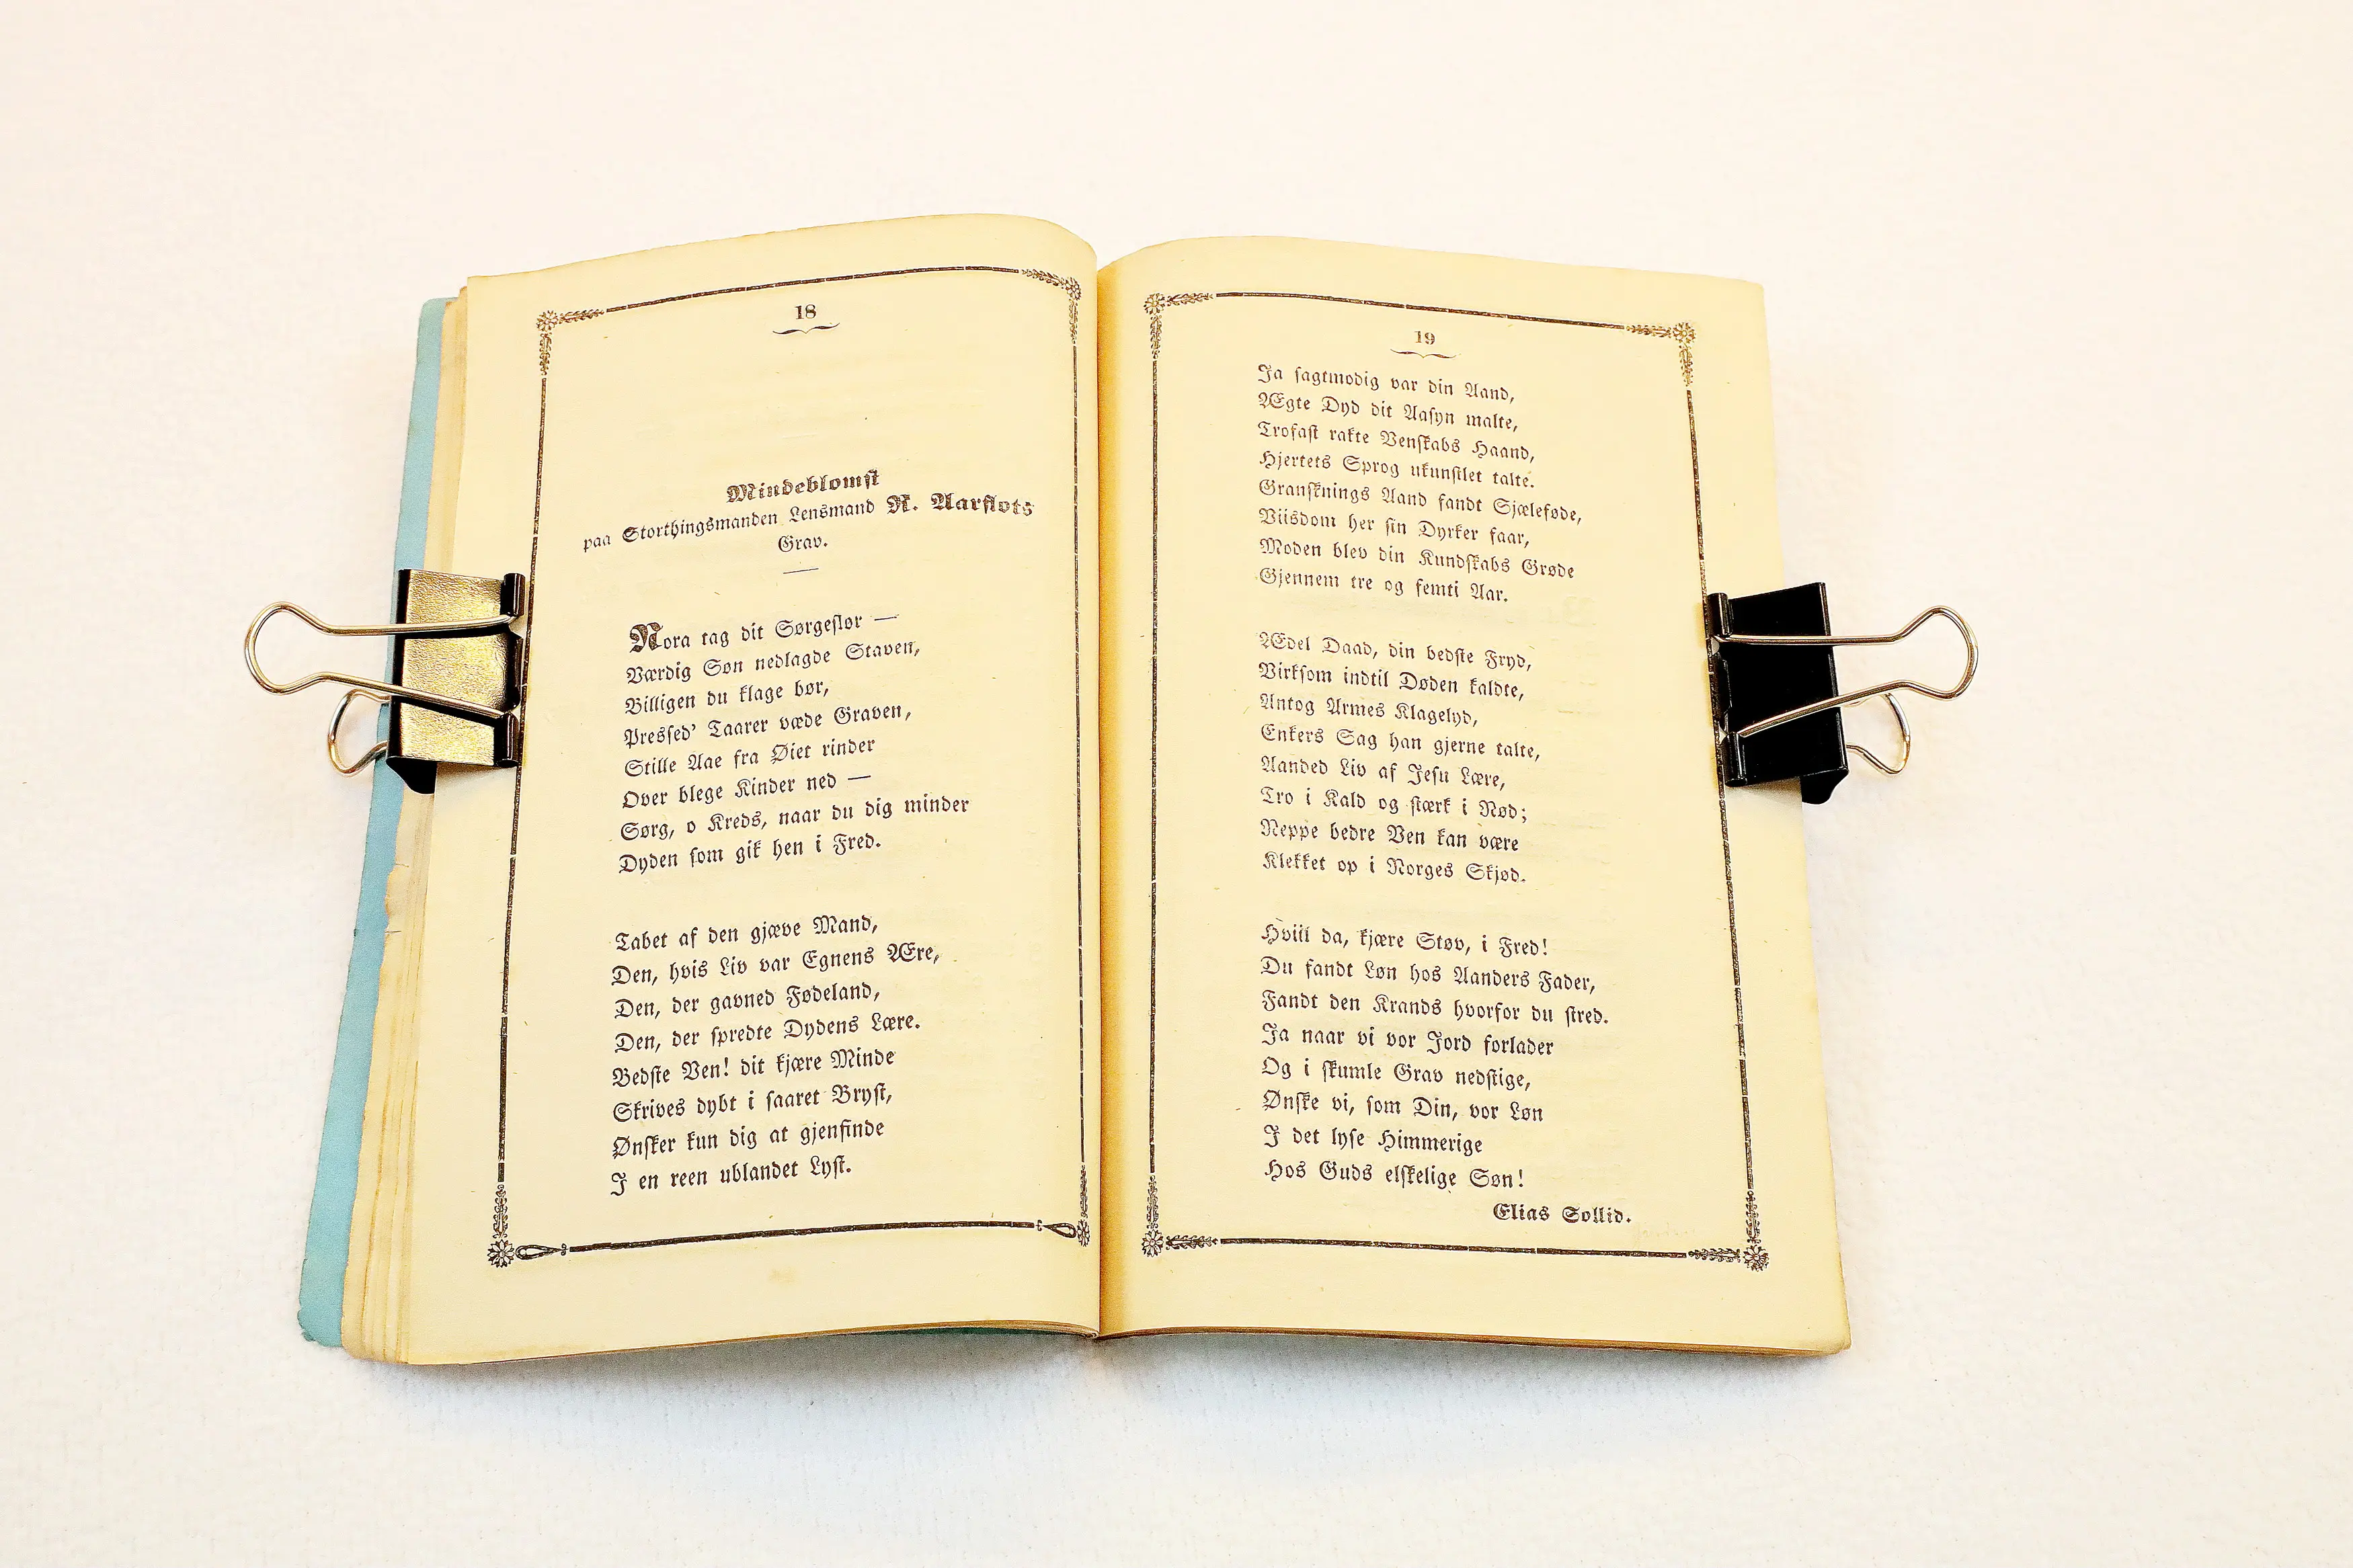 18
Mindeblomst
paa Storthingsmanden Lensmand R. Aarflots
Grav.
Nora tag dit Sørgeslør —
Værdig Søn nedlagde Staven,
Billigen du klage bør,
Presſed' Taarer væde Graven,
Stille Aae fra Øiet rinder
Over blege Kinder ned —
Sørg, o Kreds, naar du dig minder
Dyden ſom gik hen i Fred.
Tabet af den gjæve Mand,
Den, hvis Liv var Egnens Ære,
Den, der gavned Fødeland,
Den, der ſpredte Dydens Lære.
Bedſte Ven! dit kjære Minde
Skrives dybt i ſaaret Bryſt,
Ønſker kun dig at gjenfinde
I en reen ublandet Lyſt.
19
Ja ſagtmodig var din Aand,
Ægte Dyd dit Aaſyn malte,
Trofaſt rakte Venſkabs Haand,
Hjertets Sprog ukunſtlet talte.
Granſknings Aand fandt Sjæleføde,
Viisdom her ſin Dyrker faar,
Moden blev din Kundſkabs Grøde
Gjennem tre og femti Aar.
Ædel Daad, din bedſte Fryd,
Virkſom indtil Døden kaldte,
Antog Armes Klagelyd,
Enkers Sag han gjerne talte,
Aanded Liv af Jeſu Lære,
Tro i Kald og ſtærk i Nød;
Neppe bedre Ven kan være
Klekket op i Norges Skjød.
Hviil da, kjære Støv, i Fred!
Du fandt Løn hos Aanders Fader,
Fandt den Krands hvorfor du ſtred.
Ja naar vi vor Jord forlader
Og i ſkumle Grav nedſtige,
Ønſke vi, ſom Din, vor Løn
I det lyſe Himmerige
Hos Guds elſkelige Søn!
Elias Sollid.